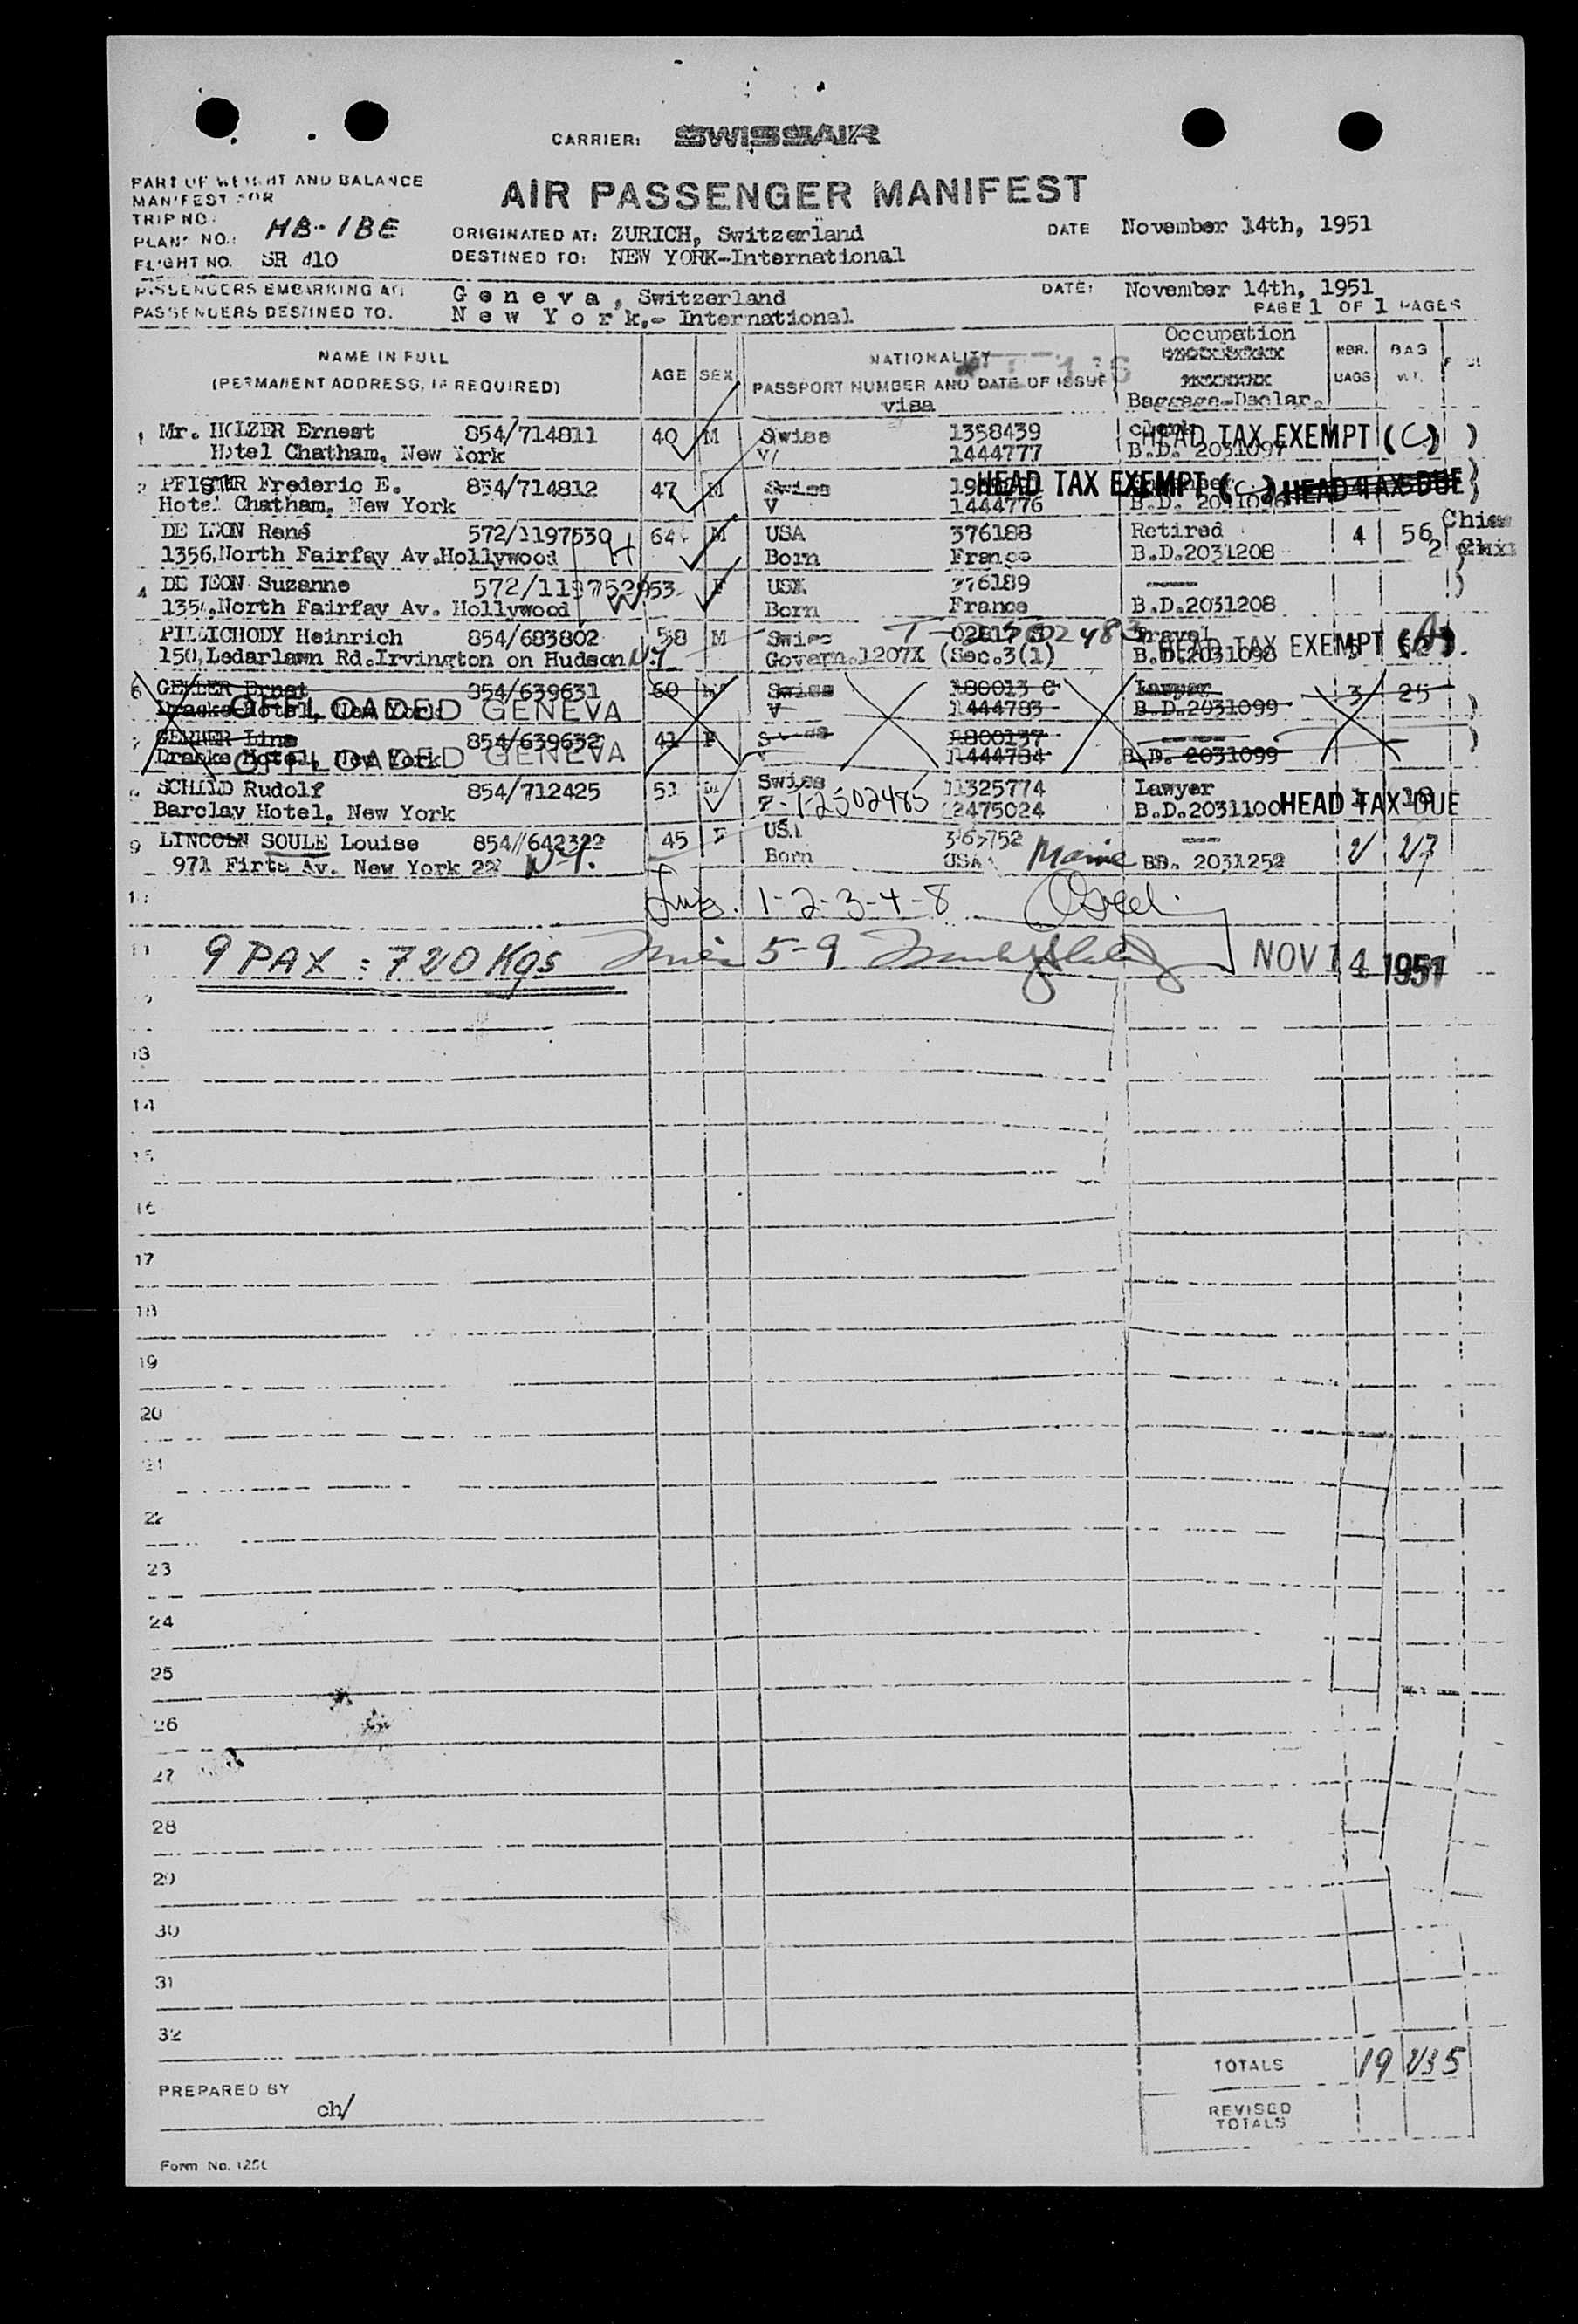 CARRIER: SWISSAIR
PART OF WEIGHT AND BALANCE
MANIFEST FOR
AIR PASSENGER MANIFEST
TRIP NO.
PLANE NO.: HB-IBE
ORIGINATED AT: ZURICH, Switzerland
DATE November 14th, 1951
FLIGHT NO. SR 410
DESTINED TO: NEW YORK-International
PASSENGERS EMBARKING AT: Geneva, Switzerland
DATE: November 14th, 1951
PASSENGERS DESTINED TO. New York,- International
PAGE 1 OF 1 PAGES
NAME IN FULL
(PERMANENT ADDRESS, IF REQUIRED)
AGE
SEX
NATIONALITY
PASSPORT NUMBER AND DATE OF ISSUE
visa
Occupation
Baggage-Declar.
NBR.
BAGS
BAG
WT.
1 Mr. HOLZER Ernest 854/714811 40 M Swiss 1358439
Hotel Chatham, New York V 1444777 B.D. 2031097
HEAD TAX EXEMPT (C)
2 PFISTER Frederic E. 854/714812 47 M Swiss
Hotel Chatham, New York V 1444776 B.D.
HEAD TAX EXEMPT (C) HEAD TAX DUE
DE LEON René 572/1197530 64 M USA 376188 Retired 4 56
1356,North Fairfay Av.Hollywood Born France B.D.2031208 2
4 DE LEON Suzanne 572/1197529 53 F USA 376189
1356,North Fairfay Av. Hollywood Born France B.D.2031208
PILLICHODY Heinrich 854/683802 58 M Swiss
150,Ledarlawn Rd.Irvington on Hudson N.Y. Govern.1207X (Sec.3(1) B.D.2031098
HEAD TAX EXEMPT (A)
6 GEYLER Ernst 854/639631 60 M Swiss A80013 C Lawyer 3 25
Draske Hotel, New York V 1444783 B.D.2031099
OFFLOADED GENEVA
7 GEYLER Line 854/639632 41 F A800137
Draske Hotel, New York 1444784 B.D. 2031099
OFFLOADED GENEVA
8 SCHILD Rudolf 854/712425 51 M Swiss 1325774 Lawyer
Barclay Hotel, New York 1-2502485 2475024 B.D.2031100
HEAD TAX DUE
9 LINCOLN SOULE Louise 854/642322 45 F USA 365752 2 27
971 Firts Av. New York 22 N.Y. Born USA Maine BD. 2031252
1-2-3-4-8
11 9 PAX : 720 Kgs 5-9 NOV 14 1951
13
14
15
16
17
18
19
20
21
22
23
24
25
26
27
28
29
30
31
32
TOTALS 19 235
PREPARED BY
ch/
REVISED
TOTALS
Form No.